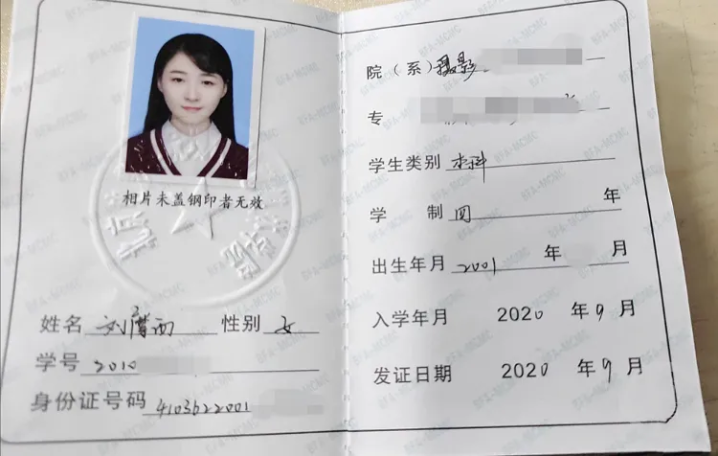 相片未盖钢印者无效
姓名 刘 雨 性别 女
学号 2010
身份证号码 4103622001
院(系)摄影
专
学生类别 本科
学 制 四 年
出生年月 2001 年 月
入学年月 2020 年 9 月
发证日期 2020 年 9 月
BFA-MCMC